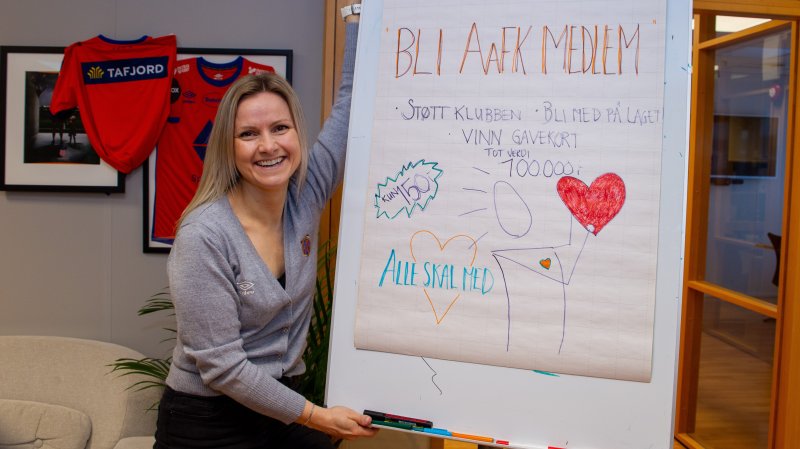 TAFJORD
"BLI AaFK MEDLEM"
· STØTT KLUBBEN · BLI MED PÅ LAGET
· VINN GAVEKORT
TOT VERDI
100.000,-
KUN 150,-
ALLE SKAL MED